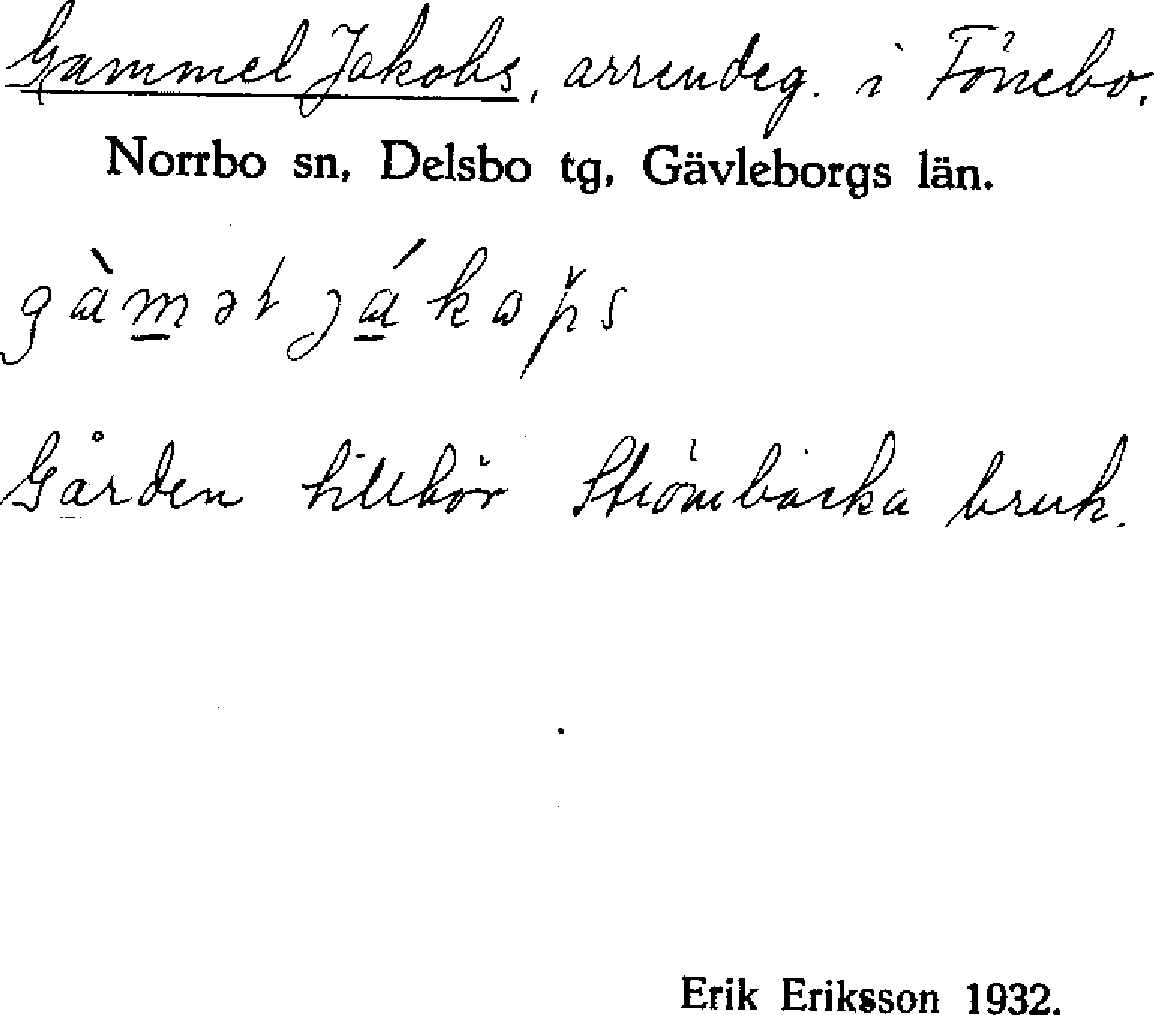 Gammel Jakobs, arrendeg. i Fönebo.
Norrbo sn, Delsbo tg, Gävleborgs län.
gàməɫ jákops
Gården tillhör Strömbacka bruk.
Erik Eriksson 1932.